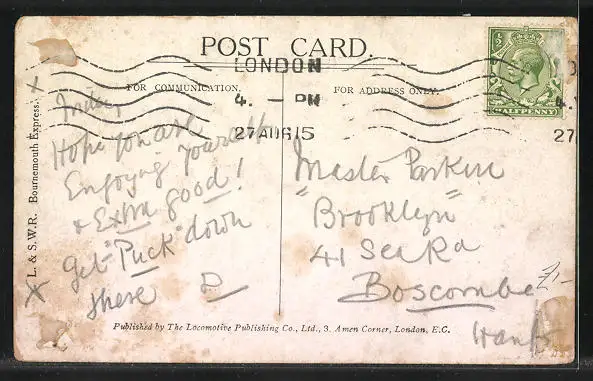 POST CARD.
LONDON
4. — PM
27 AUG 15
FOR COMMUNICATION.
FOR ADDRESS ONLY.
½
HALFPENNY
4.
27
L. & S.W.R. Bournemouth Express.
Hope you are
Enjoying yourself
& Extra good!
Get "Puck" down
there D
Master Parken
"Brooklyn"
41 Sea Rd
Boscombe
Hants
£1-
Published by The Locomotive Publishing Co., Ltd., 3, Amen Corner, London, E.C.